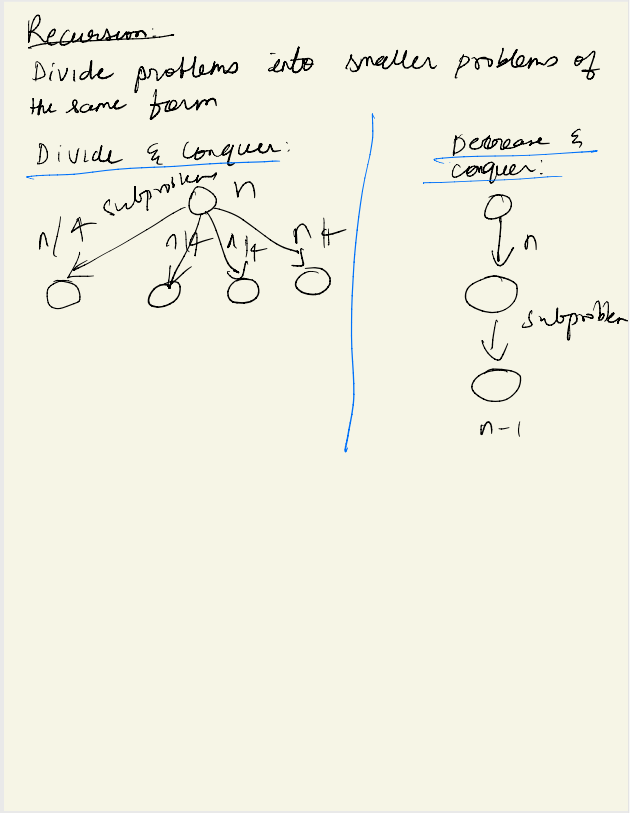 Recursion:
Divide problems into smaller problems of
the same form
Divide & Conquer:
subproblems
n
n/4
n/4
n/4
n/4
Decrease &
Conquer:
n
subproblem
n-1